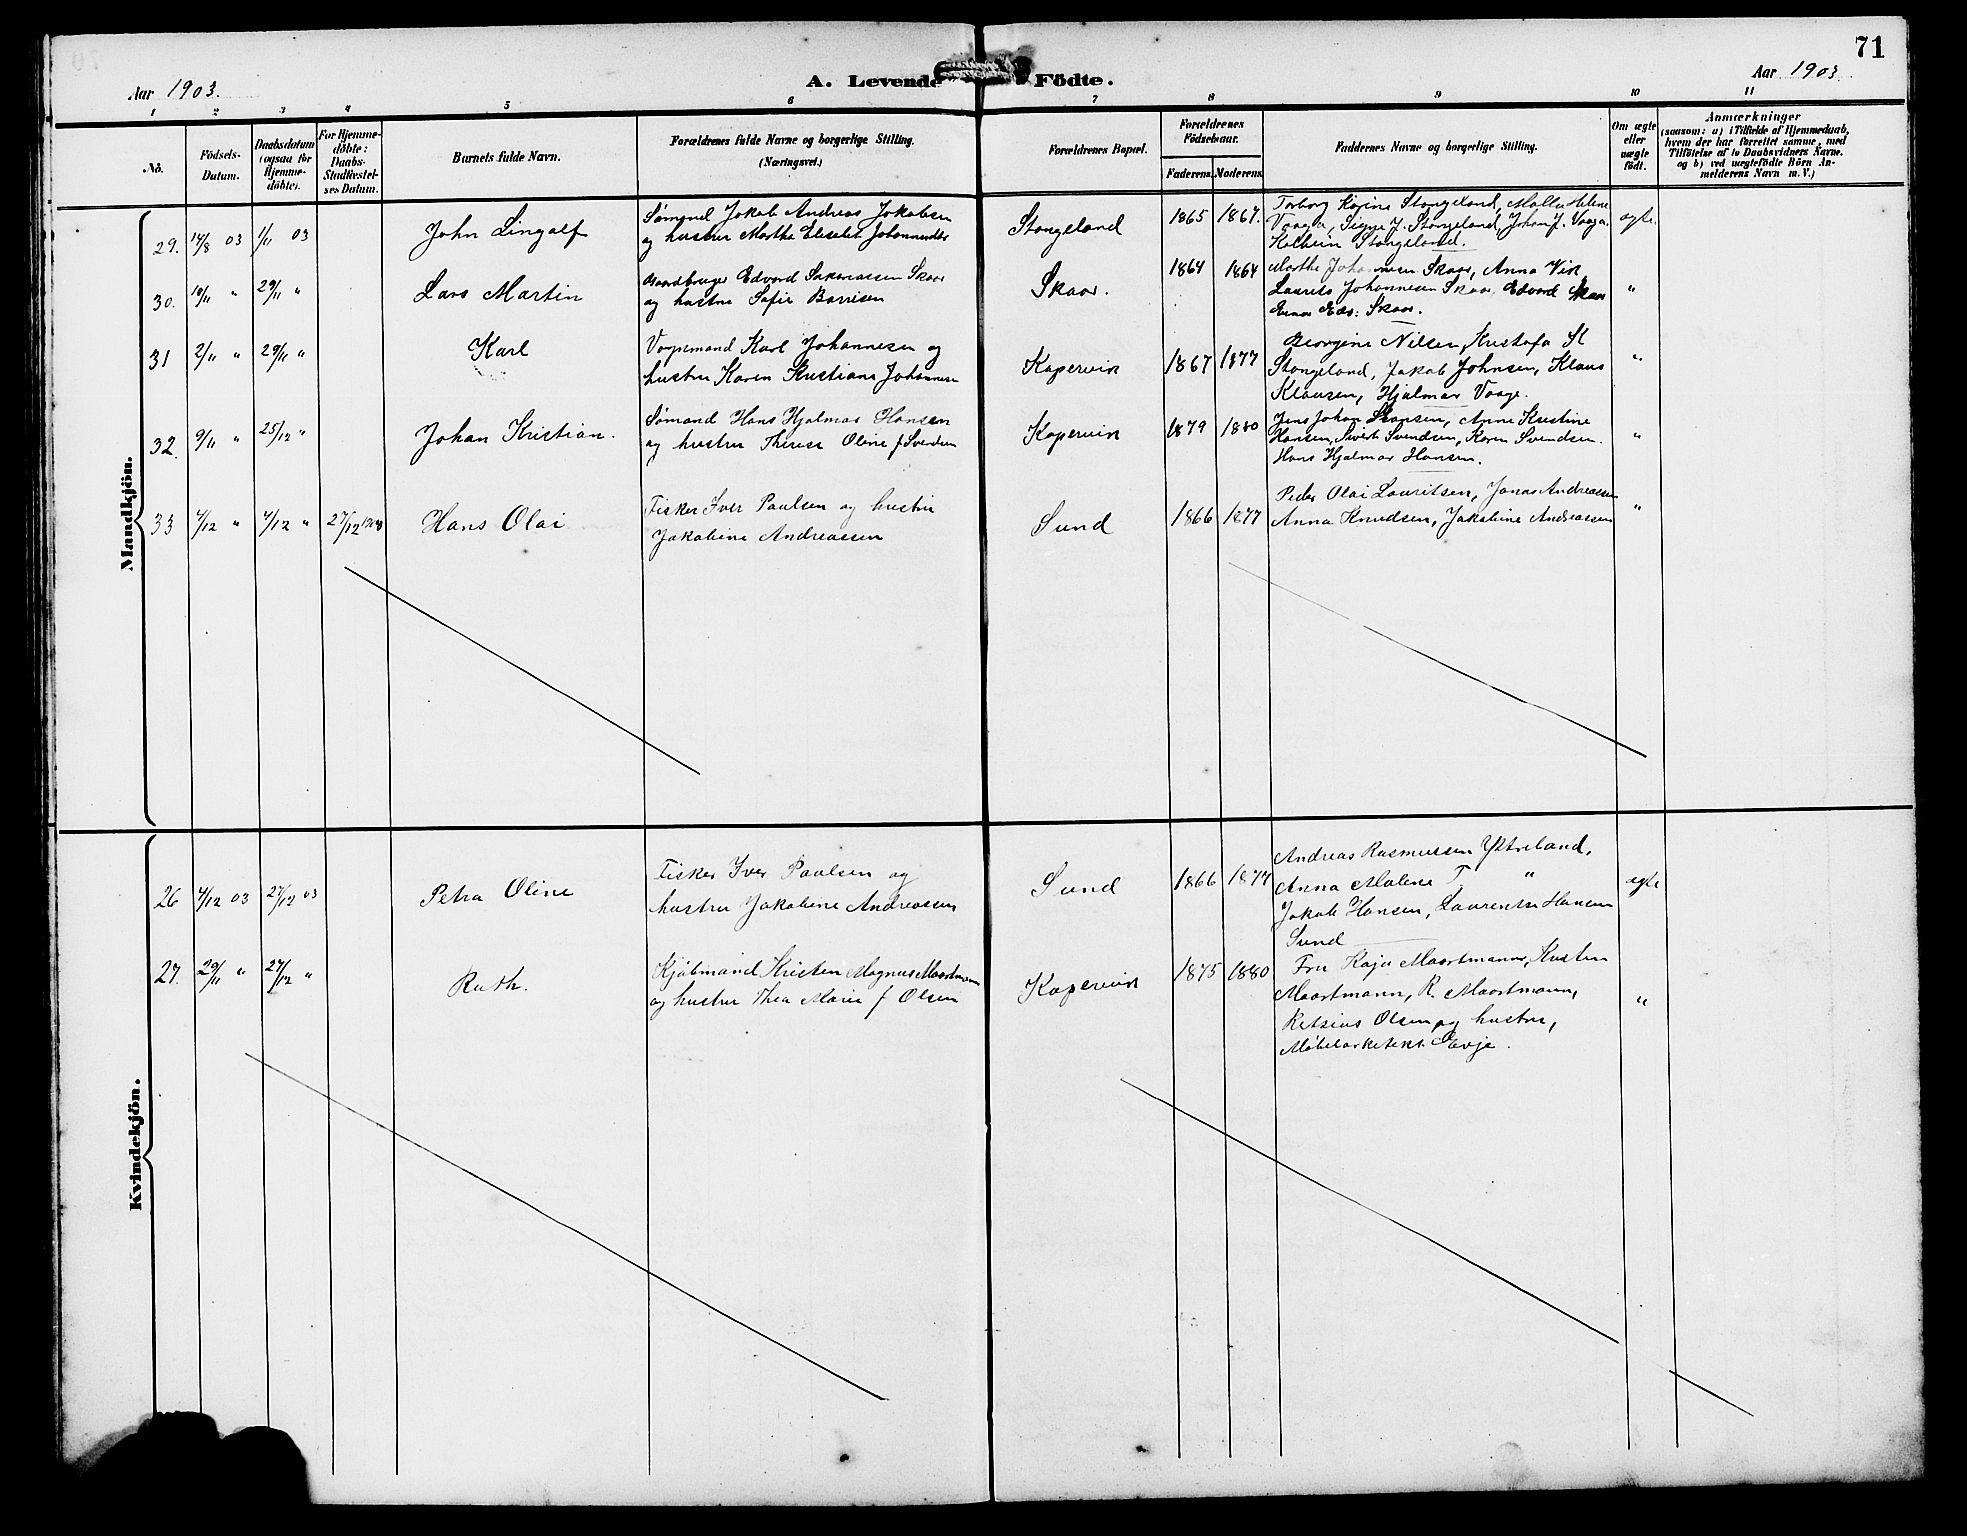 71
Aar 1903.
A. Levende Födte.
Aar 1903.
1 2 3 4 5 6 7 8 9 10 11
No.
Födsels-
Datum.
Daabsdatum
(ogsaa for
Hjemme-
döbte).
For Hjemme-
döbte:
Daabs-
Stadfæstel-
ses Datum.
Barnets fulde Navn.
Forældrenes fulde Navne og borgerlige Stilling.
(Næringsvei.)
Forældrenes Bopæl.
Forældrenes
Födselsaar.
Faderens. Moderens.
Faddernes Navne og borgerlige Stilling.
Om ægte
eller
uægte
födt.
Anmærkninger
(saasom: a) i Tilfælde af Hjemmedaab,
hvem der har forrettet samme, med
Tilföielse af to Daabsvidners Navne.
og b) ved uægtefödte Börn An-
melderens Navn m. V.)
Mandkjön.
29. 14/8 03 1/11 03
John Lingolf
Sømand Jakob Andreas Jakobsen
og hustru Martha Elisabet Johannesdtr
Stangeland
1865 1867.
Torborg Karine Stangeland, Malla Helene
Vaaga, Signe J. Stangeland, Johan J. Vaaga.
Kolbein Stangeland.
ægte.
30. 10/11 " 29/11 "
Lars Martin
Gaardbruger Edvard Sakariassen Skaar
og hustru Sofie Barrisen
Skaar.
1864 1864
Marthe Johannesen Skaar, Anna Vik
Laurits Johannesen Skaar, Edvard Skaar
Einar Edv. Skaar.
"
31 2/11 " 29/11 "
Karl
Vognmand Karl Johannesen og
hustru Karen Kristiane Johannesen
Kopervik
1867 1877
Georgine Nilsen, Kristofa St
Stangeland, Jakob Johnsen, Klaus
Klausen, Hjalmar Vaage.
"
32. 9/11 " 25/12 "
Johan Kristian.
Sømand Hans Hjalmar Hansen
og hustru Therese Oline f Svendsen
Kopervik
1879 1880
Jens Johan Hansen, Anne Kristine
Hansen, Sivert Svendsen, Karen Svendsen.
Hans Hjalmar Hansen.
"
33 4/12 " 4/12 " 27/12 1903
Hans Olai
Fisker Iver Paulsen og hustru
Jakobine Andreassen
Sund
1866 1877
Peder Olai Lauritsen, Jonas Andreassen
Anna Knudsen, Jakobine Andreassen
"
Kvindekjön.
26 4/12 03 27/12 03
Petra Oline
Fisker Iver Paulsen og
hustru Jakobine Andreassen
Sund
1866 1877
Andreas Rasmussen Ytreland,
Anna Malene T "
Jakob Hansen, Laurentse Hansen
Sund
ægte
27. 29/11 " 27/12 "
Ruth.
Kjøbmand Kristen Magnus Maartmann
og hustru Thea Marie f Olsen
Kopervik
1875 1880
Fru Kaja Maartmann, Kristen
Maartmann, R. Maartmann,
Retzius Olsen og hustru,
Møbelarkitekt Sevje.
"